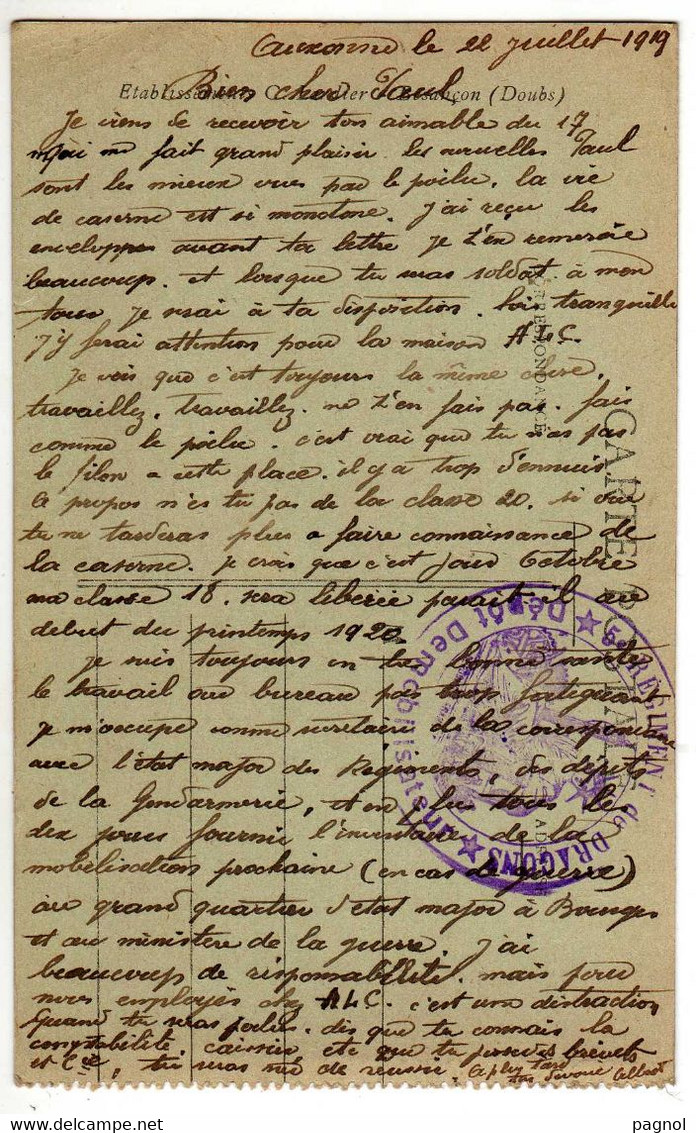 Auxonne le 22 juillet 1919
Bien cher Paul
Etablissements C. Besançon (Doubs)
Je viens de recevoir ton aimable du 17
qui m'a fait grand plaisir. les nouvelles Paul
sont les mieux vues par le poilu, la vie
de caserne est si monotone. J'ai reçu les
enveloppes avant ta lettre je t'en remercie
beaucoup. et lorsque tu seras soldat à mon
tour je serai à ta disposition. sois tranquille
j'y ferai attention pour la maison ALC.
Je vois que c'est toujours la même chose,
travaillez, travaillez. ne t'en fais pas. fais
comme le poilu. c'est vrai que tu n'as pas
le filon a cette place. il y a trop d'ennuis.
A propos n'es tu pas de la classe 20. si oui
tu ne tarderas plus a faire connaissance de
la caserne. je crois que c'est pour Octobre
ma classe 18. sera libérée parait-il au
debut du printemps 1920.
Je suis toujours en très bonne santé
le travail au bureau pas trop fatiguant
je m'occupe comme secretaire de la correspondance
avec l'état major des Régiments, des dépots
de la Gendarmerie, et en plus tous les
dix jours fournir l'inventaire de la
mobilisation prochaine (en cas de guerre)
au grand quartier d'etat major à Bourges
et au ministère de la guerre. J'ai
beaucoup de responsabilité. mais pour
nous employés chez ALC. c'est une distraction
Quand tu seras poilu. dis que tu connais la
comptabilité caissier etc que tu possedes brevets
et Cie, tu seras sûr de reussir. A plus tard
ton devoué Albert
CORRESPONDANCE
CARTE POSTALE
ADRESSE
★ 5e REGIMENT de DRAGONS ★ Dépôt Démobilisateur